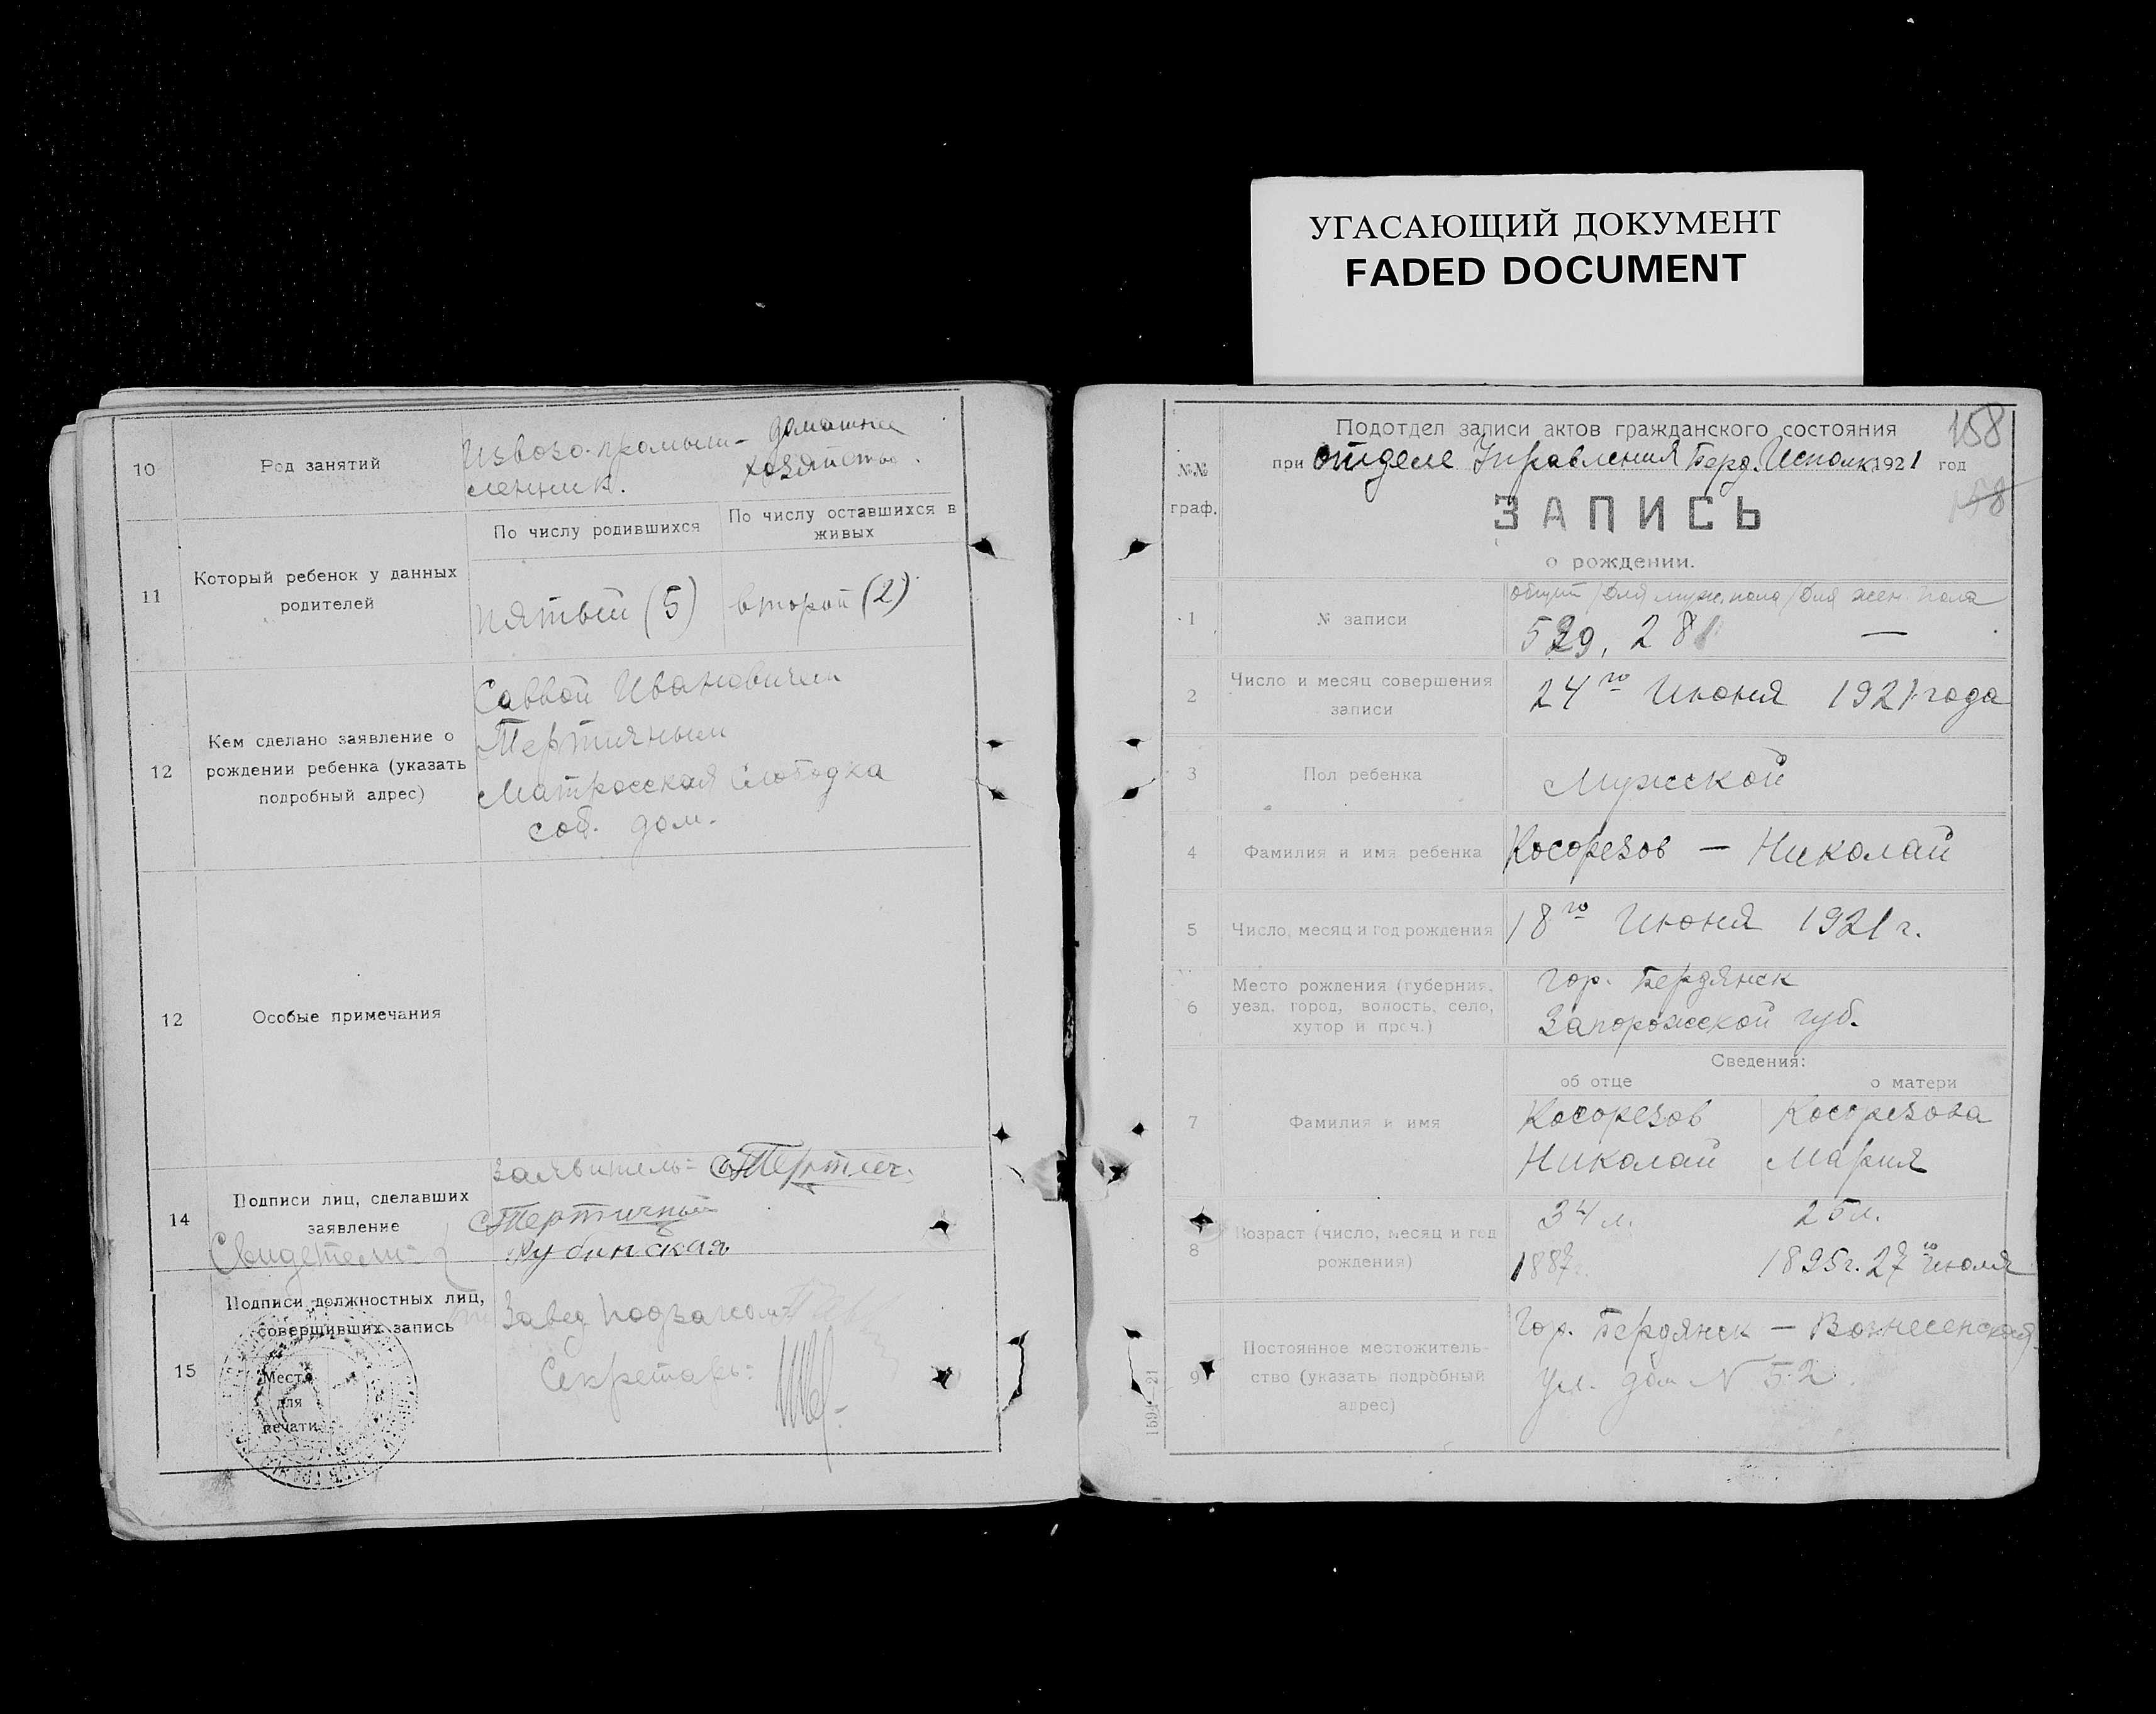 УГАСАЮЩИЙ ДОКУМЕНТ
FADED DOCUMENT
10
Род занятий
Извозо-промыш-
ленник.
домашнее
хозяйство.
11
Который ребенок у данных
родителей
По числу родившихся
По числу оставшихся в
живых
пятый (5)
второй (2)
12
Кем сделано заявление о
рождении ребенка (указать
подробный адрес)
Саввой Ивановичем
Матросская Слободка
соб. дом.
12
Особые примечания
14
Подписи лиц, сделавших
заявление
Свидетели:
Заявитель:
15
Подписи должностных лиц,
совершивших запись
Место
для
печати.
Завед.
Секретарь:
№№
граф.
Подотдел записи актов гражданского состояния
158
при отделе Управления Берд. Исполк. 1921 год
158
ЗАПИСЬ
о рождении.
1
№ записи
общий / для муж. пола / для жен. пола
529, 281 —
2
Число и месяц совершения
записи
24го Июня 1921 года
3
Пол ребенка
Мужской
4
Фамилия и имя ребенка
Косорезов — Николай
5
Число, месяц и год рождения
18го Июня 1921 г.
6
Место рождения (губерния,
уезд, город, волость, село,
хутор и проч.)
гор. Бердянск
Запорожской губ.
Сведения:
об отце
о матери
7
Фамилия и имя
Косорезов
Николай
Косорезова
Мария
8
Возраст (число, месяц и год
рождения)
34 л.
1887г.
25 л.
1895г. 27го
9
Постоянное местожитель-
ство (указать подробный
адрес)
Гор. Бердянск — Вознесенская
ул. дом N 52.
1594—21